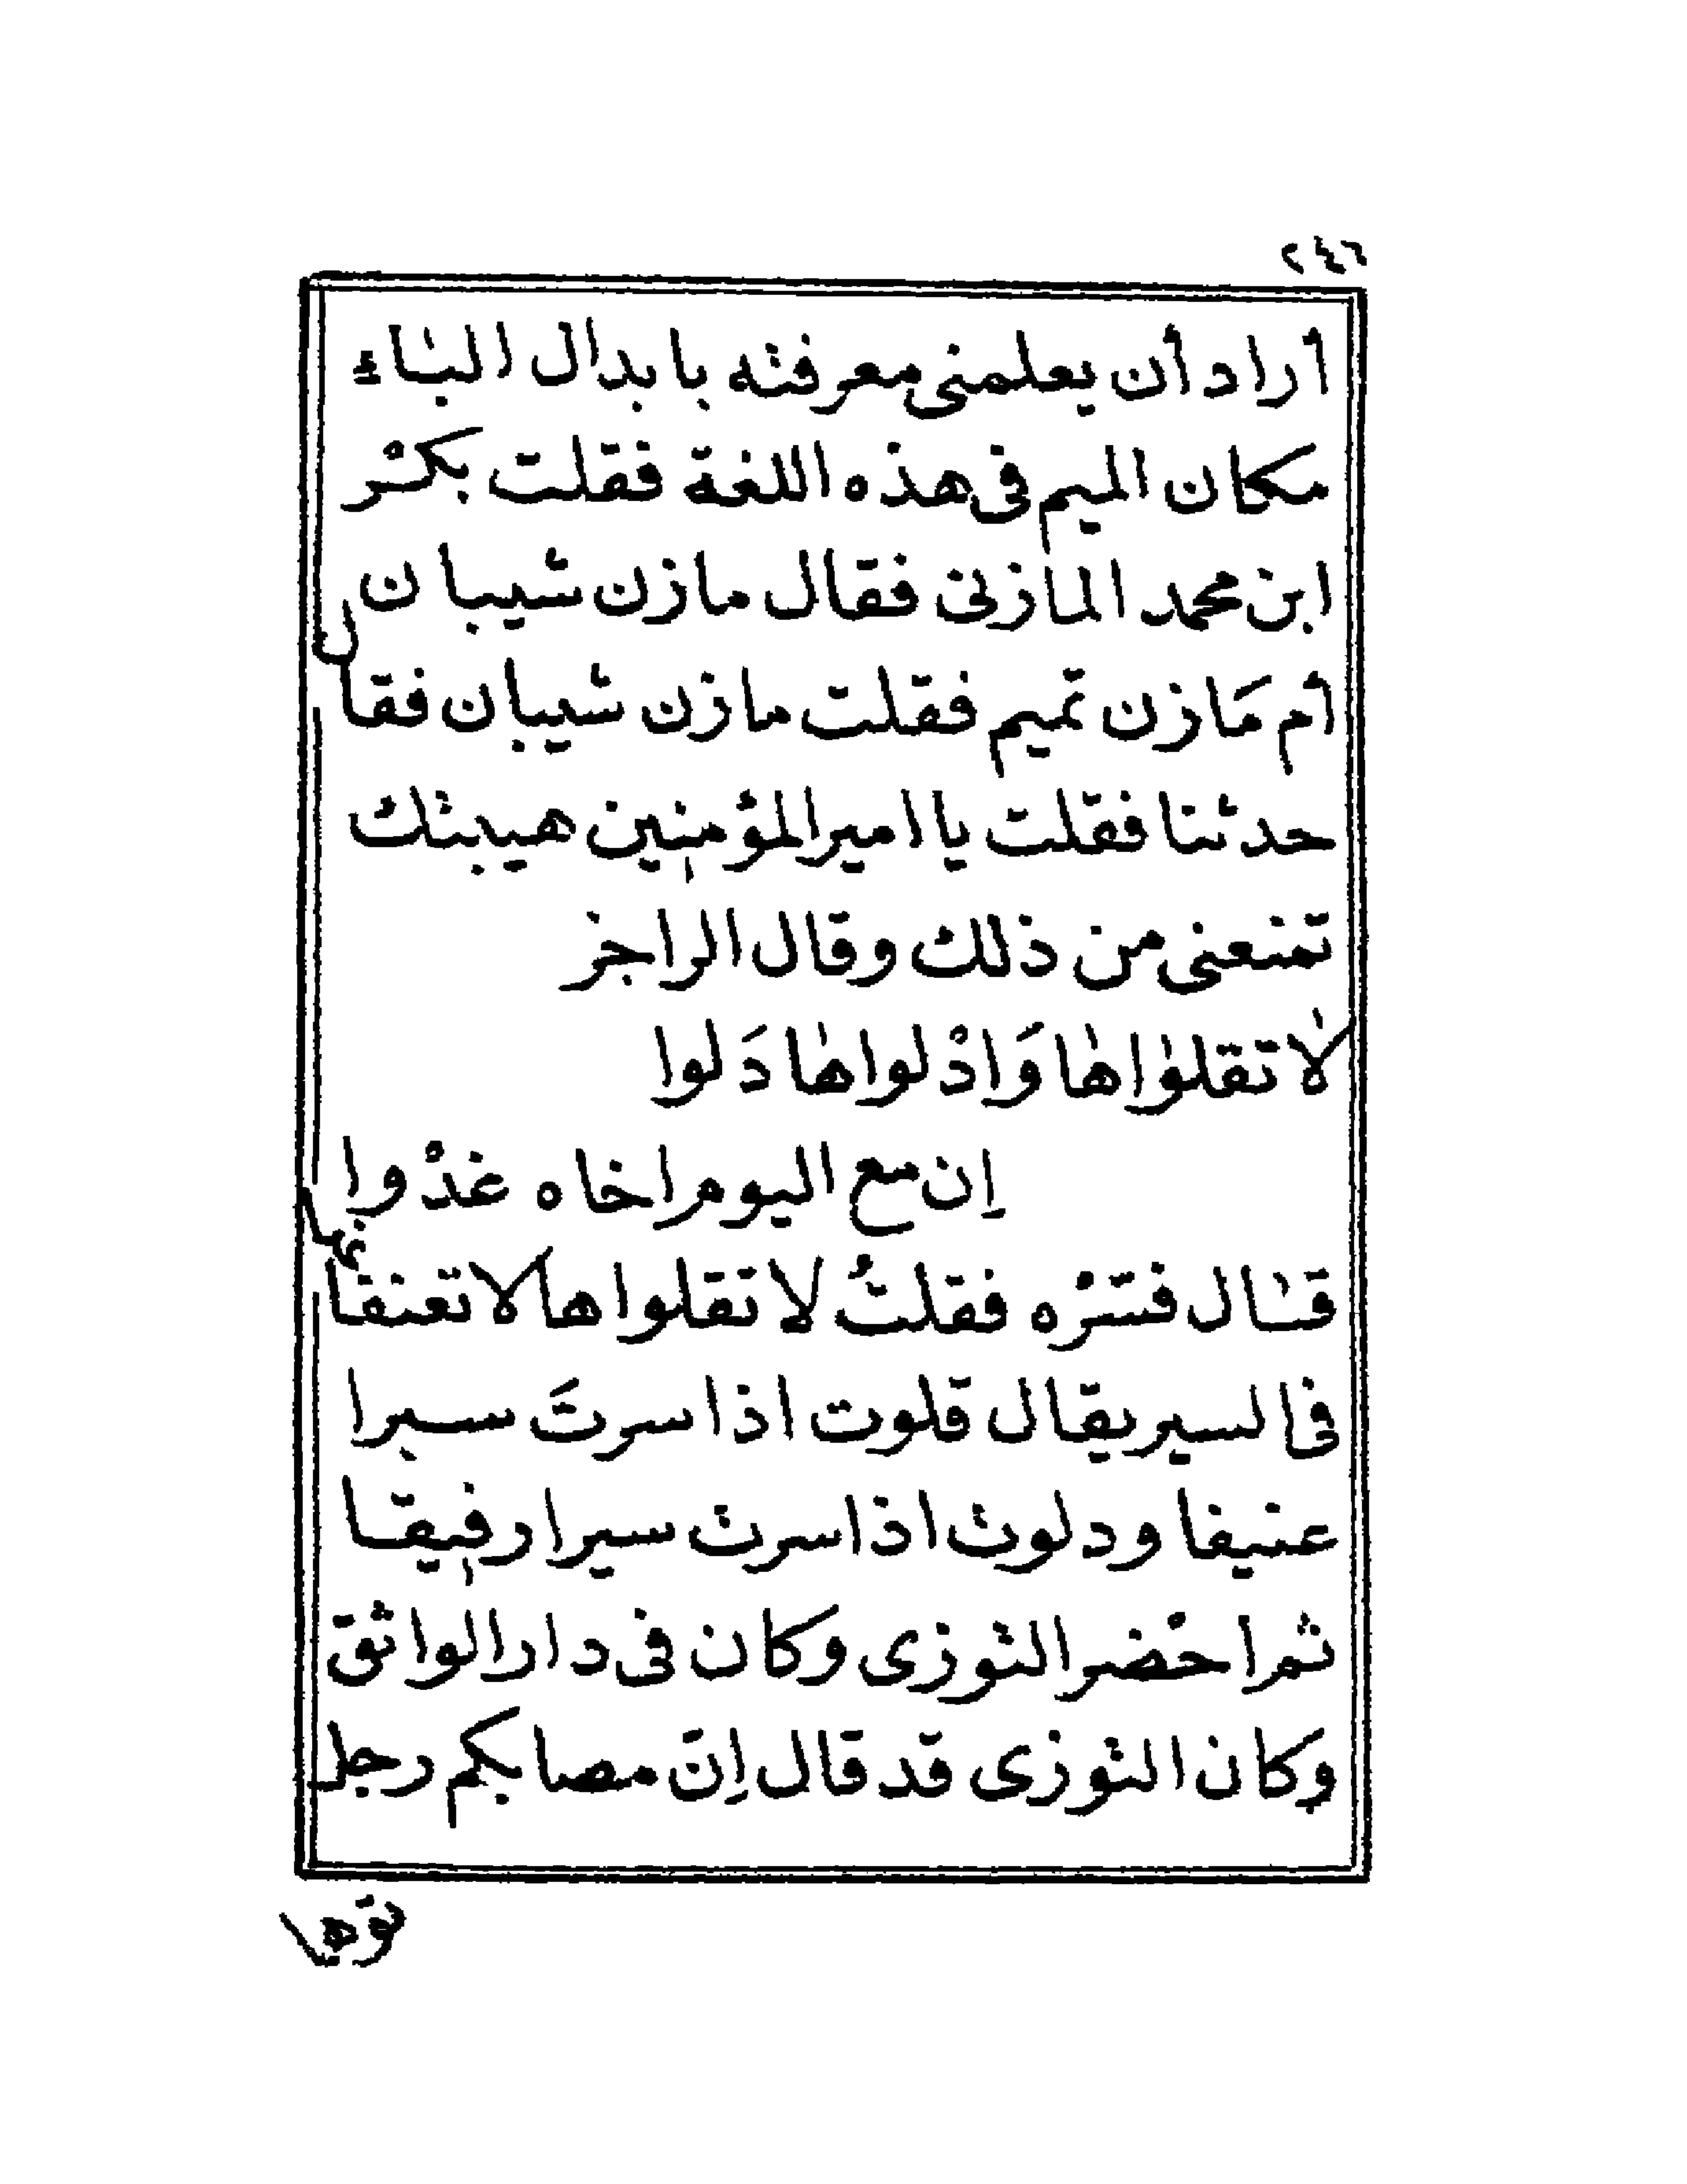 ٢٤٦
أراد أن يعلمنى معرفته بابدال الباء
مكان الميم فى هذه اللغة فقلت بكر
ابن محمد المازنى فقال مازن شيبان
أم مَازن تميم فقلت مازن شيبان فقال
حدثنا فقلت يا امير المؤمنين هيبتك
تمنعنى من ذلك وقال الراجز
لا تقلواها وَادْلواها دَلوا
اِن مع اليوم اخاه غدْوا
قال فسّره فقلتُ لا تقلواها لا تعنفاها
فى السير يقال قلوت اذا سرتَ سيرا
عنيفا ودلوت اذا سرت سيرا رفيقا
ثم احْضر التوزى وكان فى دار الواثق
وكان التوزى قد قال اِنّ مصابكم رجل
توها